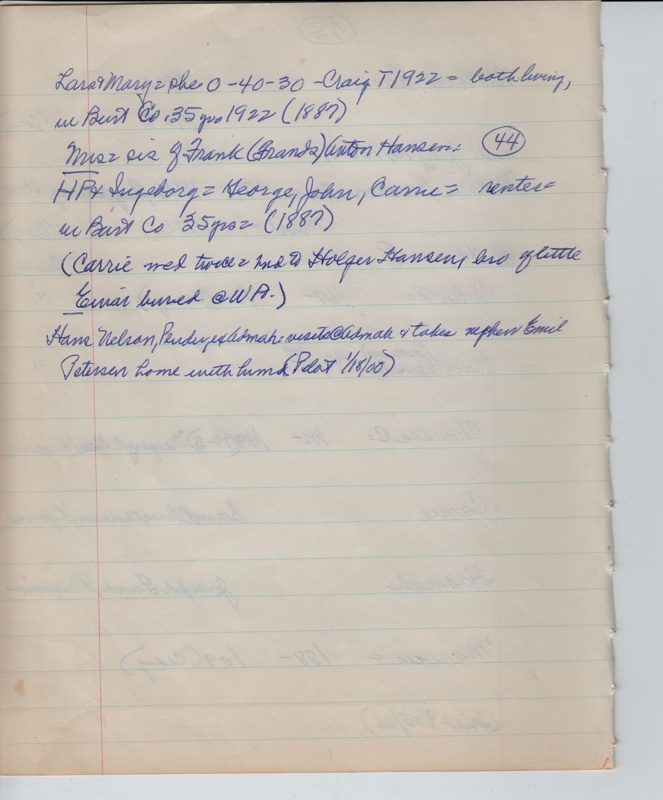 Lars & Mary = she 0-40-30 - Craig T 1922 = both living,
in Burt Co. 35 yrs 1922 (1887)
Mrs = sis of Frank (Frands) Anton Hansen =
44
HP & Ingeborg = George, John, Carrie = renter =
in Burt Co 35 yrs = (1887)
(Carrie med twice = 2nd to Holger Hansen, bro of little
Einar buried @ WA.)
Hans Nelson, Pender, ex Admah: visits @ Admah & takes nephew Emil
Petersen home with him. (Pilot 1/18/00)